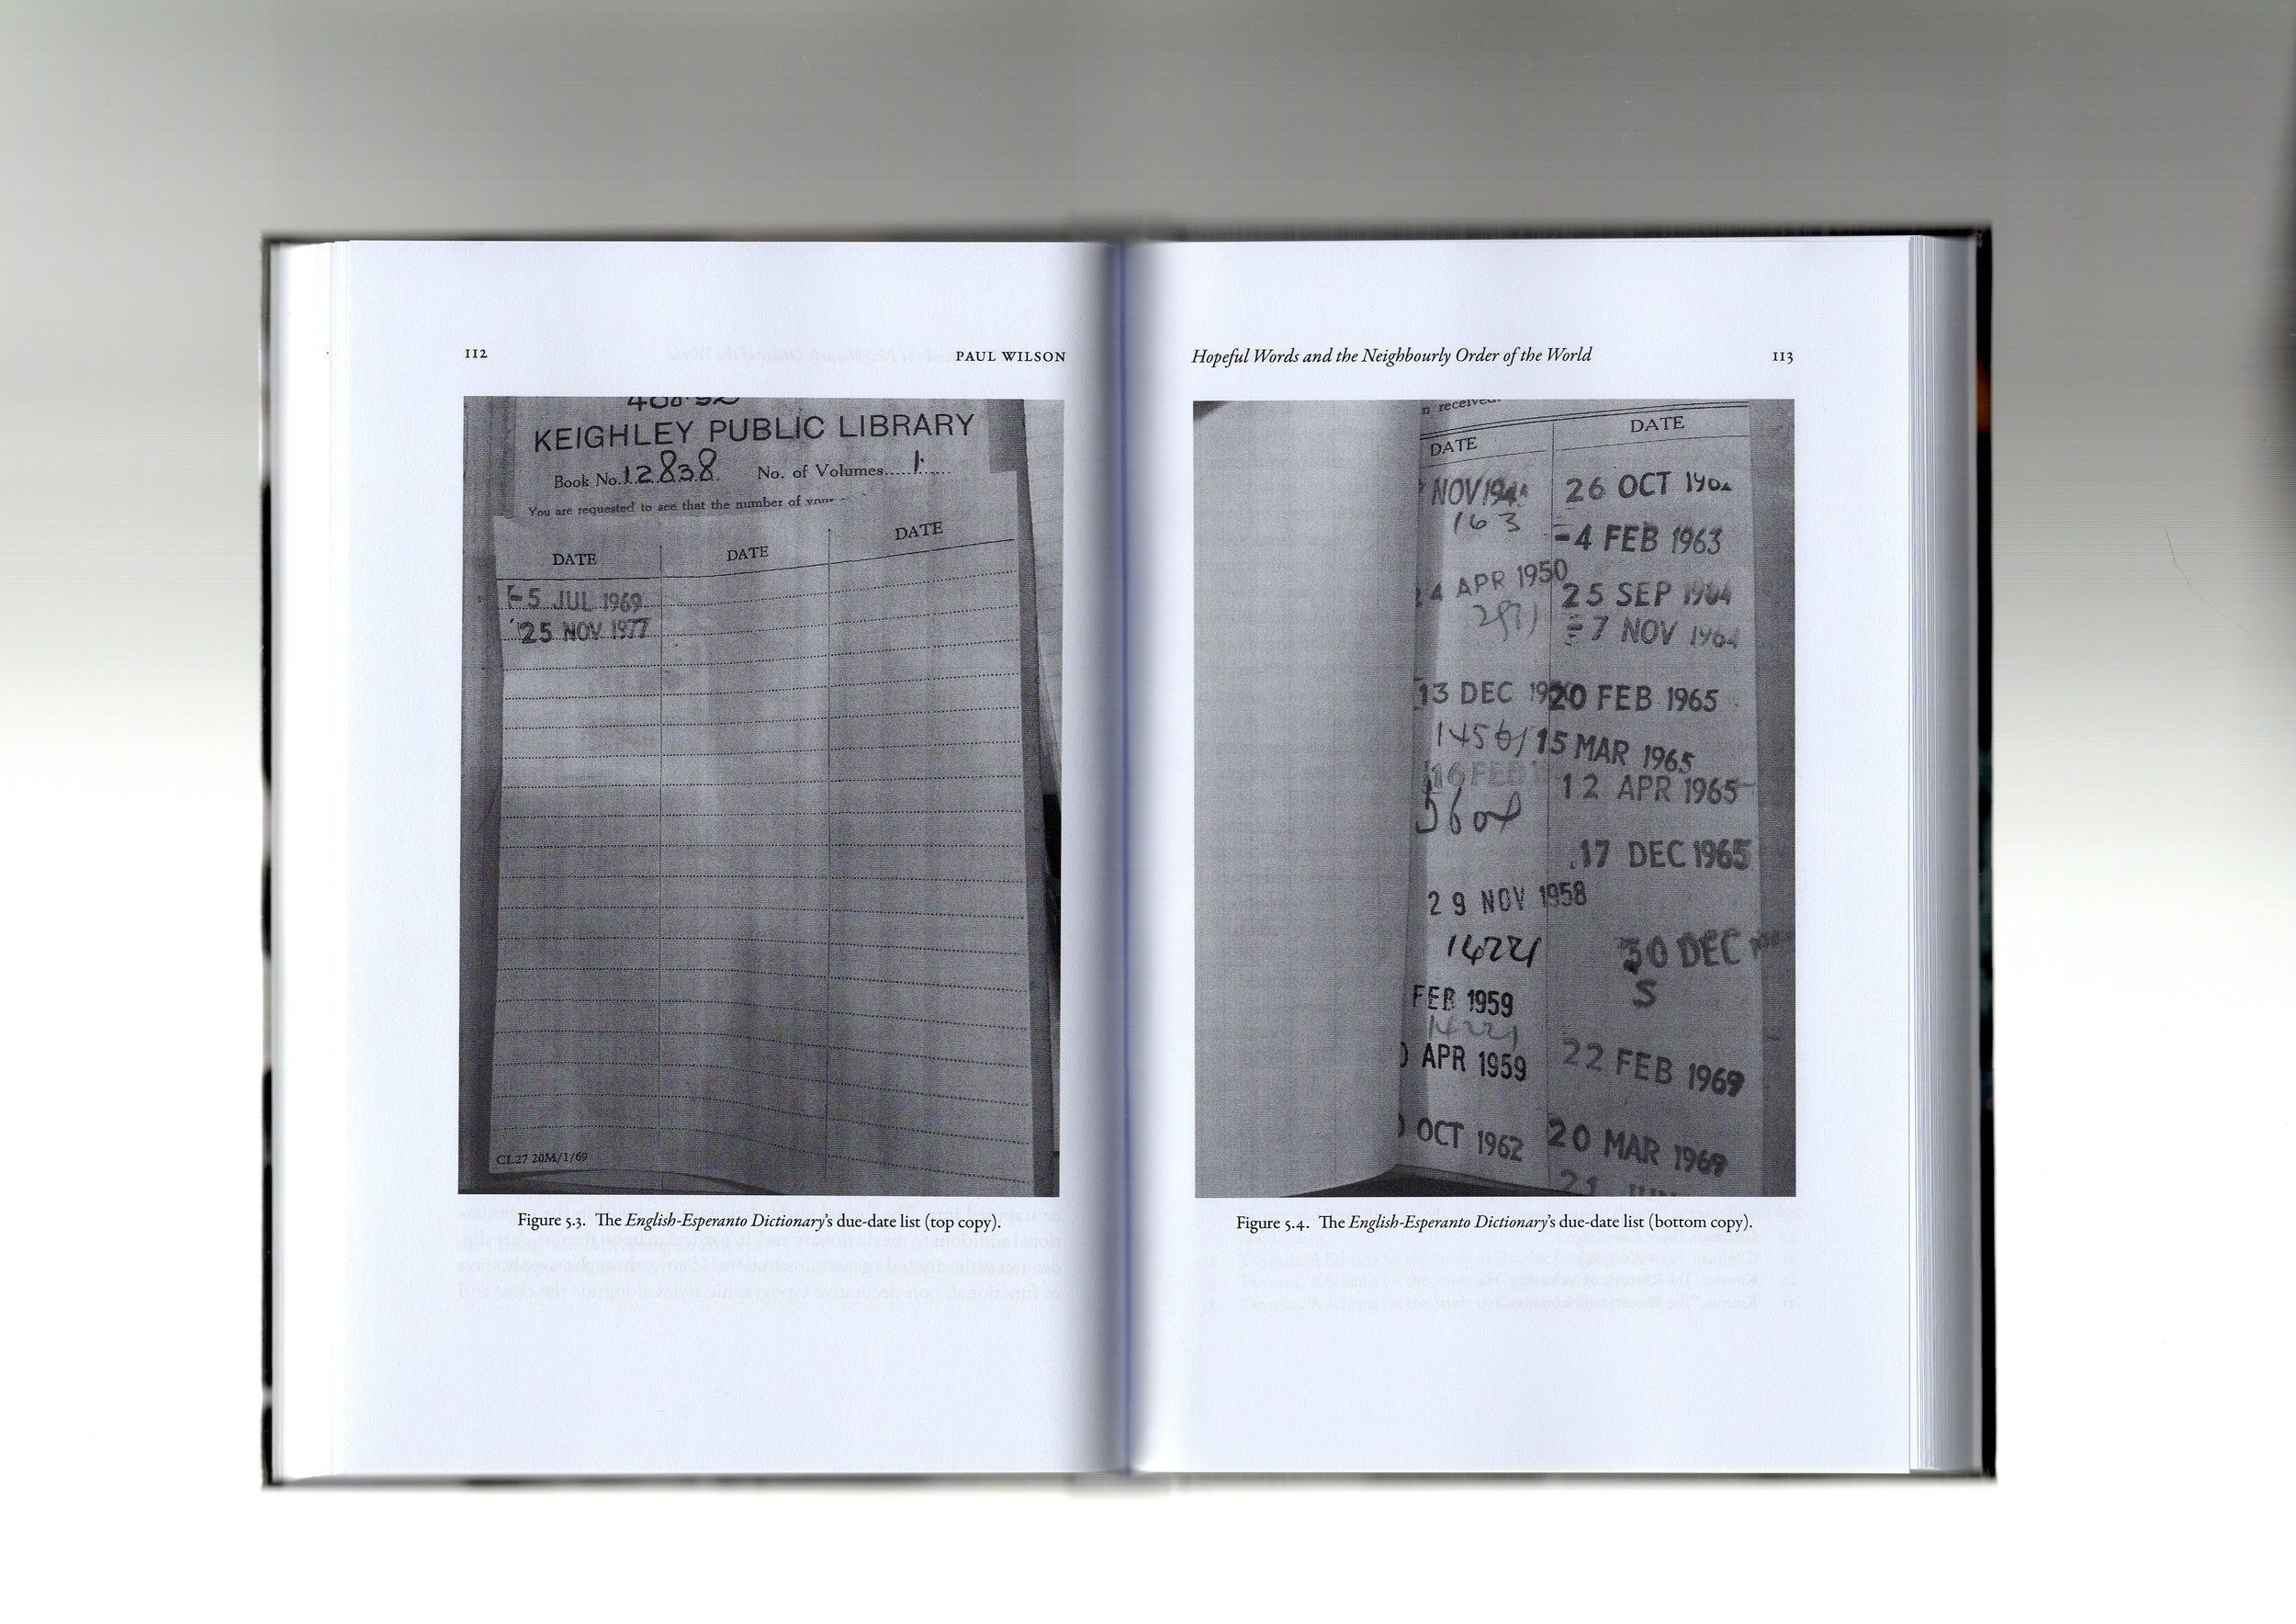 112
PAUL WILSON
KEIGHLEY PUBLIC LIBRARY
Book No. 12838 No. of Volumes.....1......
You are requested to see that the number of
DATE DATE DATE
-5 JUL 1969
25 NOV 1977
CL27 20M/1/69
Figure 5.3. The English-Esperanto Dictionary's due-date list (top copy).
Hopeful Words and the Neighbourly Order of the World
113
received.
DATE
NOV
163
24 APR 1950
13 DEC
16 FEB
29 NOV 1958
14221
FEB 1959
14221
APR 1959
OCT 1962
DATE
26 OCT
-4 FEB 1963
25 SEP 1964
-7 NOV 1964
20 FEB 1965
15 MAR 1965
12 APR 1965
17 DEC 1965
30 DEC
S
22 FEB 1969
20 MAR 1969
Figure 5.4. The English-Esperanto Dictionary's due-date list (bottom copy).